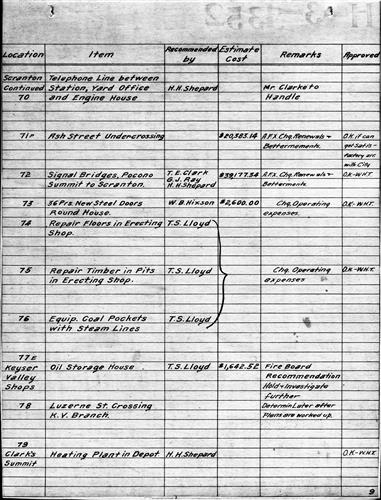 Location Item Recommended by Estimate Cost Remarks Approved
Scranton Telephone Line between
Continued Station, Yard Office Mr Clarke to
70 and Engine House H.H. Shepard Handle
71F Ash Street Undercrossing $20,383.14 A.F.X. Chg. Renewals & O.K. if can
Betterments. get Satis-
factory arr.
with City
72 Signal Bridges, Pocono T.E. Clark $39177.34 A.F.X. Chg. Renewals & O.K-W.H.T.
Summit to Scranton. G.J. Ray Betterments.
H.H. Shepard
73 36 Prs. New Steel Doors W.B. Hixson $2,600.00 Chg. Operating O.K-W.H.T.
Round House. expenses.
74 Repair Floors in Erecting T.S. Lloyd
Shop.
75 Repair Timber in Pits T.S. Lloyd Chg. Operating O.K-W.H.T.
in Erecting Shop. expenses
76 Equip. Coal Pockets T.S. Lloyd
with Steam Lines
77E
Keyser Oil Storage House T.S. Lloyd $1,642.52 Fire Board
Valley Recommendation
Shops Hold & Investigate
further
78 Luzerne St. Crossing Determin Later after
K.V. Branch. Plans are worked up.
79
Clark's Heating Plant in Depot H.H. Shepard O.K-W.H.T.
Summit
9